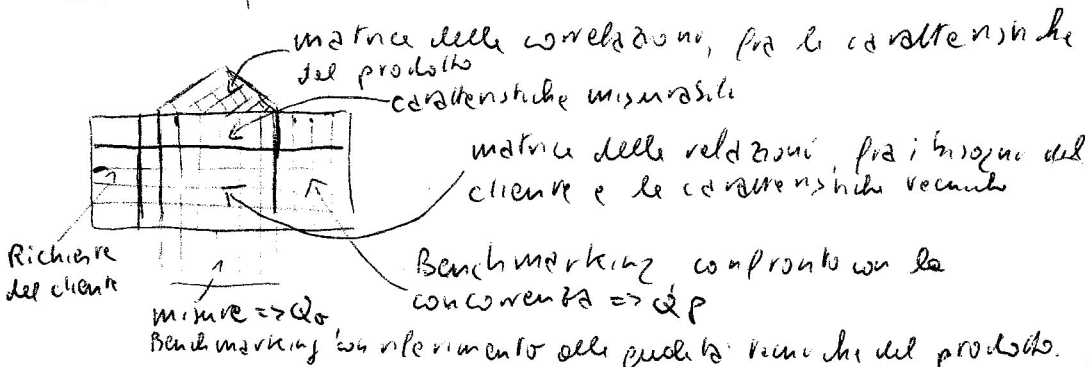 matrice delle correlazioni, fra le caratteristiche
del prodotto
caratteristiche misurabili
matrice delle relazioni, fra i bisogni del
cliente e le caratteristiche tecniche
Richieste
del cliente
Benchmarking confronto con la
concorrenza => Qp
misure => Qo
Benchmarking con riferimento alle qualità tecniche del prodotto.